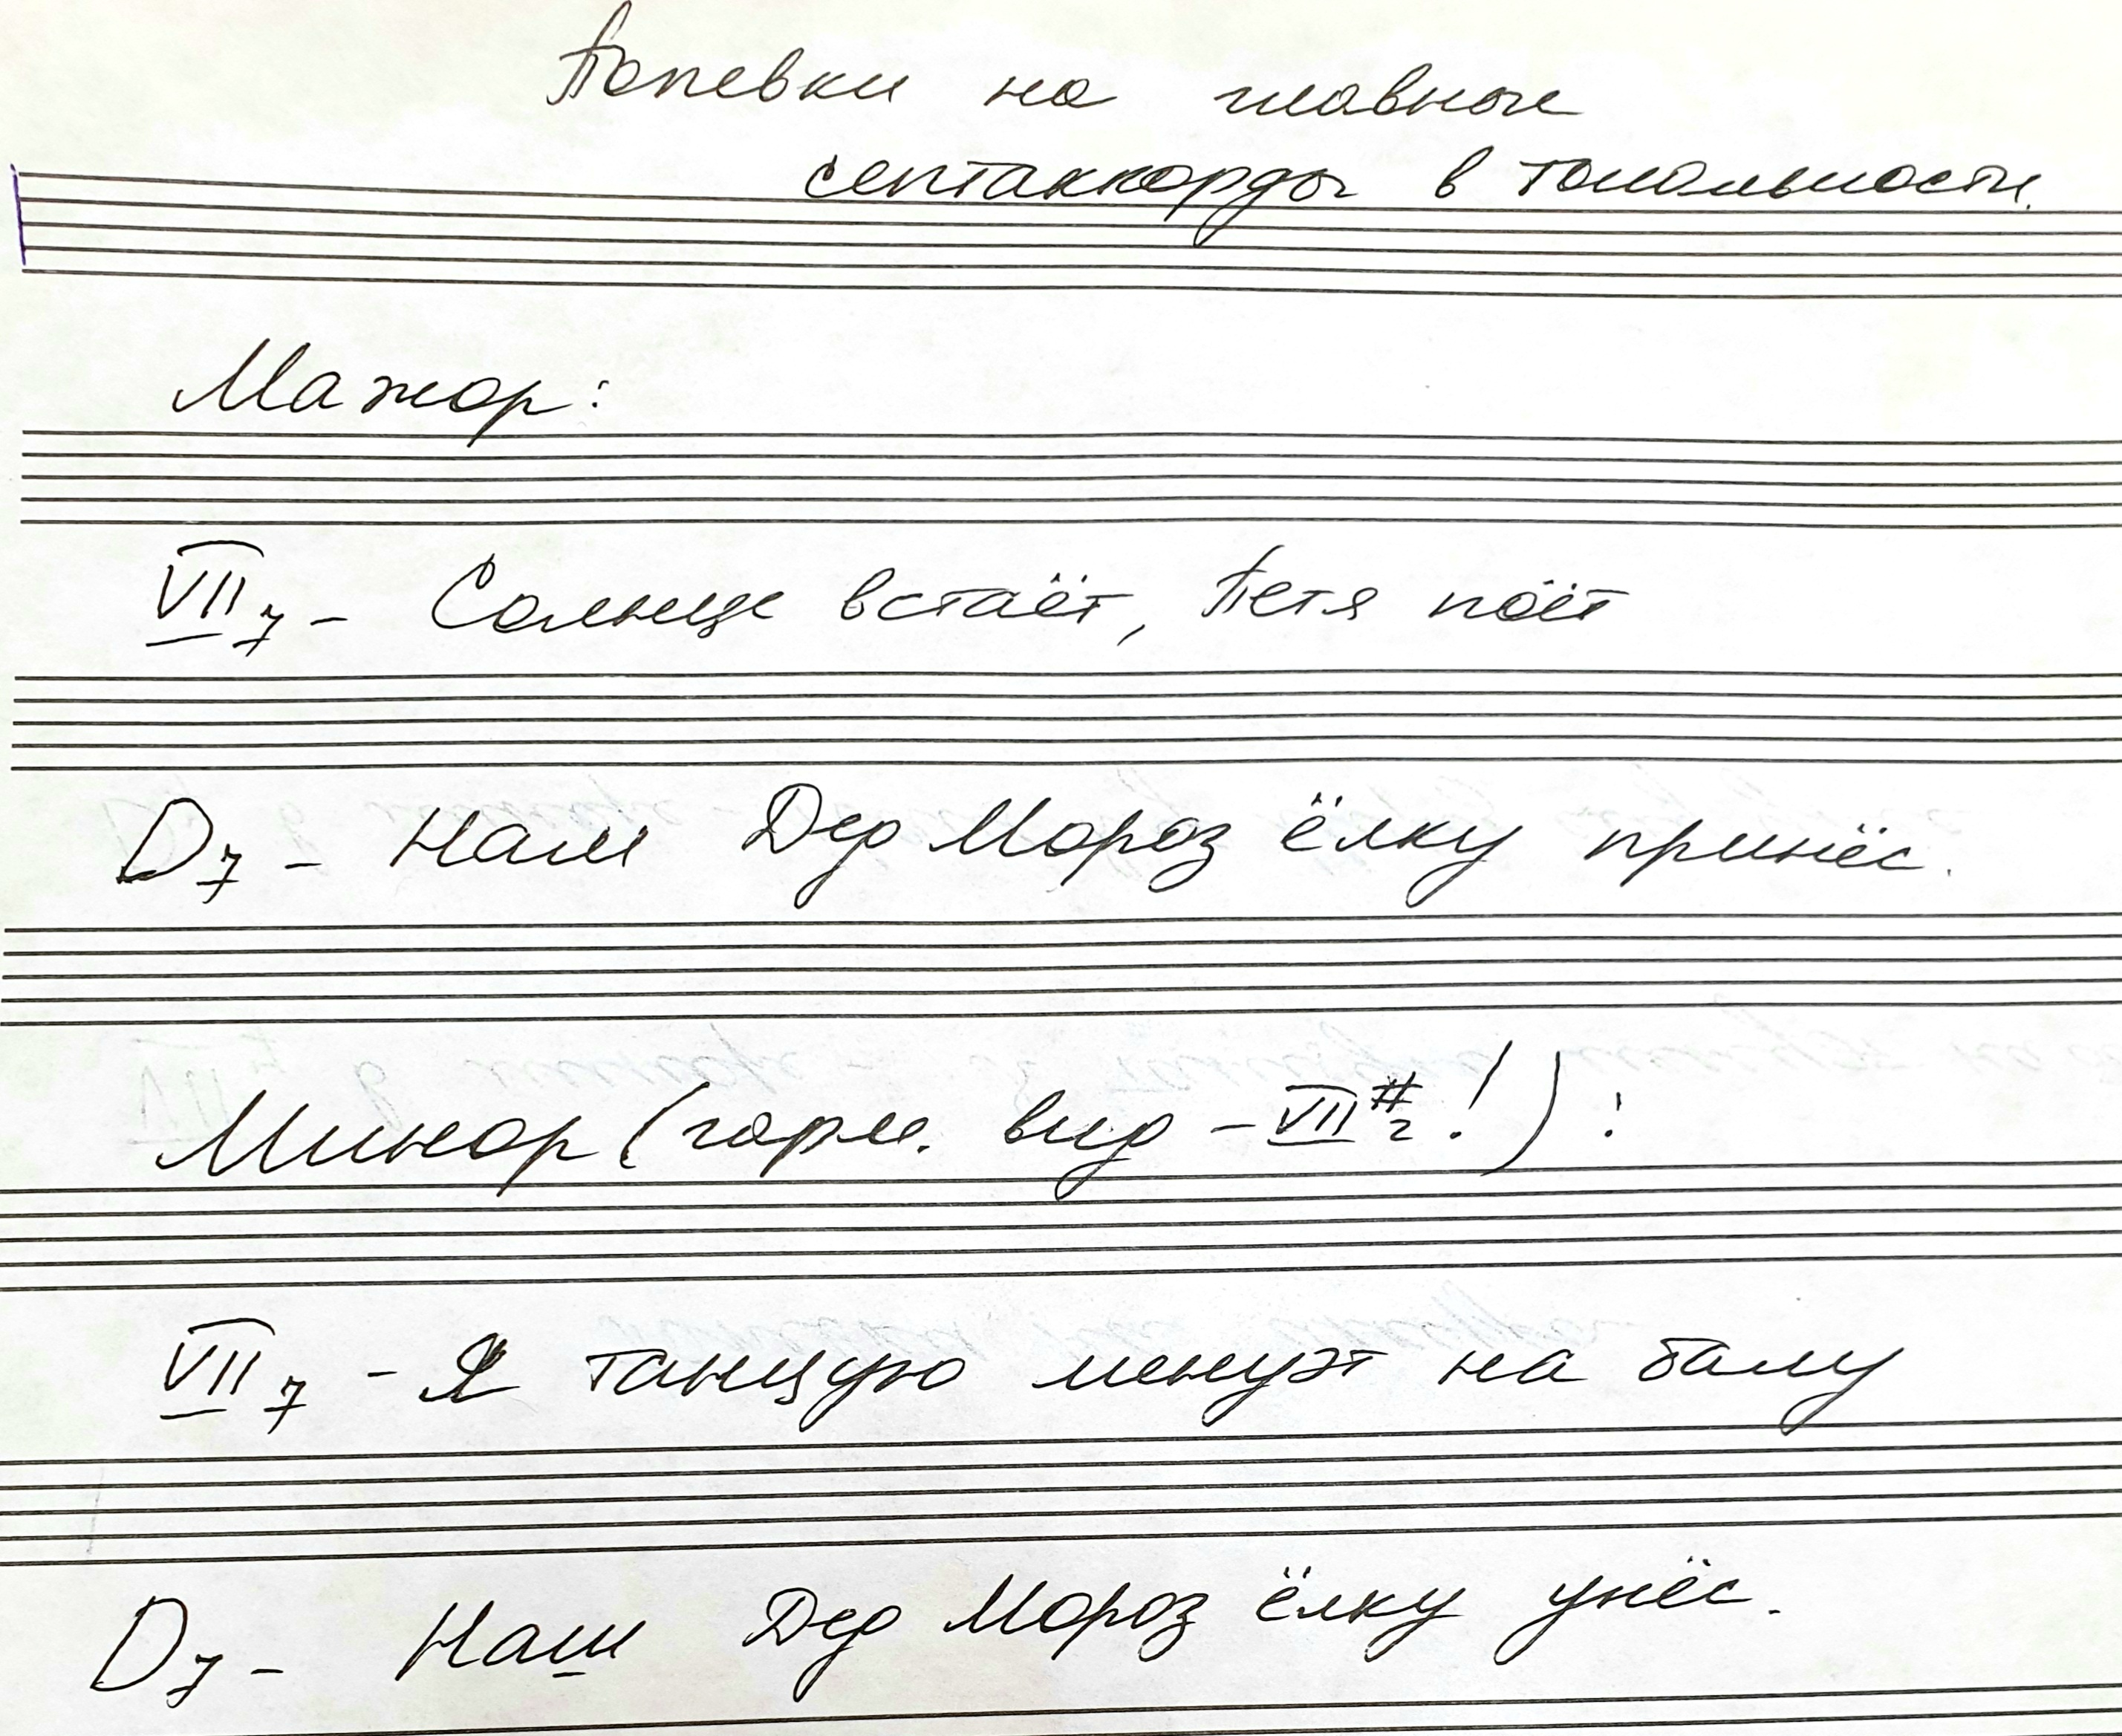 Попевки на главные
септаккорды в тональности.
Мажор:
VII7 - Солнце встаёт, Петя поёт
D7 - Наш Дед Мороз ёлку принёс.
Минор (гарм. вид - VII#г!):
VII7 - Я танцую менуэт на балу
D7 - Наш Дед Мороз ёлку унёс.